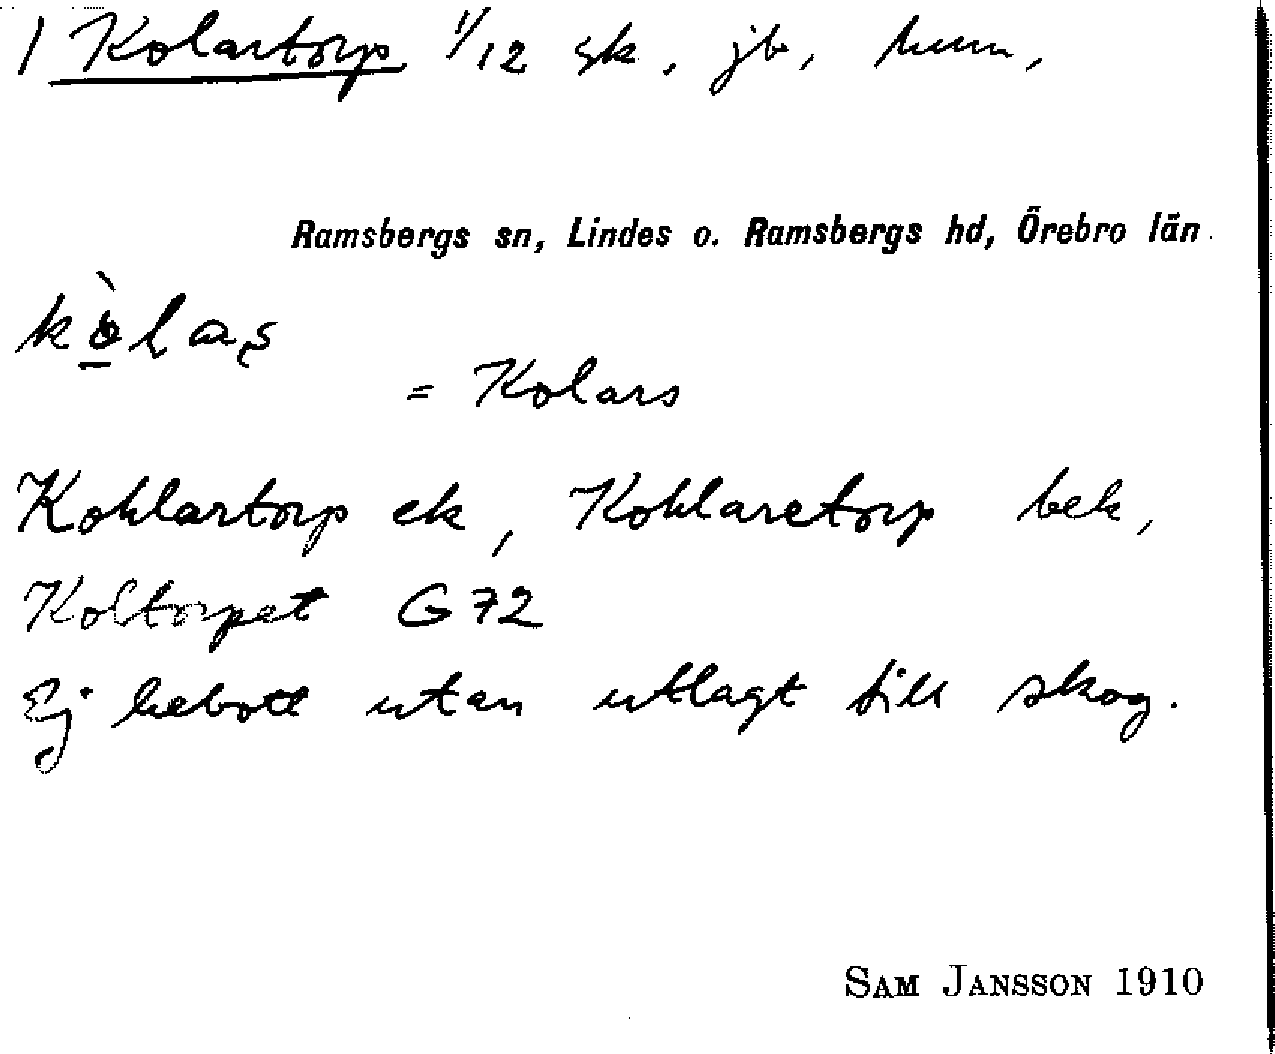 1 Kolartorp 1/12 sk. jb, hem,
Ramsbergs sn, Lindes o. Ramsbergs hd, Örebro län.
kò̱las
= Kolars
Kohlartorp ek, Kohlaretorp bek,
Koltorpet G 72
Ej bebott utan utlagt till skog.
SAM JANSSON 1910